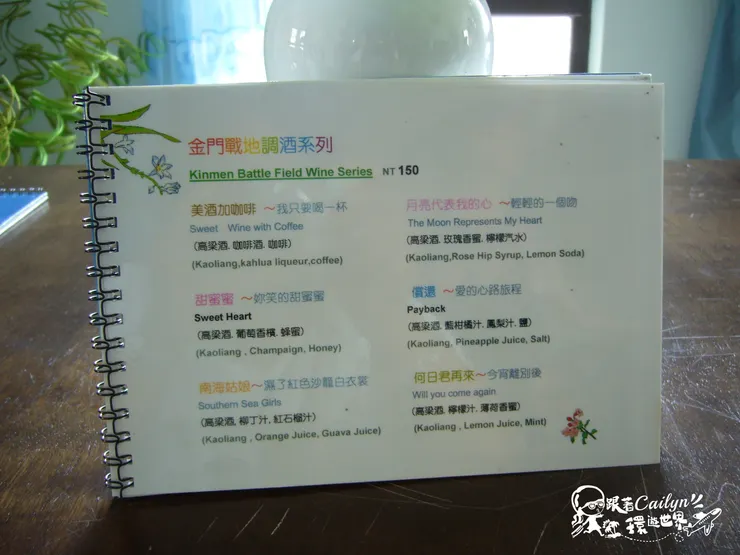 金門戰地調酒系列
Kinmen Battle Field Wine Series NT 150
美酒加咖啡 ～我只要喝一杯
Sweet Wine with Coffee
(高梁酒. 咖啡酒. 咖啡)
(Kaoliang,kahlua liqueur,coffee)
甜蜜蜜 ～妳笑的甜蜜蜜
Sweet Heart
(高梁酒. 葡萄香檳. 蜂蜜)
(Kaoliang , Champaign, Honey)
南海姑娘～濕了紅色沙籠白衣裳
Southern Sea Girls
(高梁酒. 柳丁汁, 紅石榴汁)
(Kaoliang , Orange Juice, Guava Juice)
月亮代表我的心 ～輕輕的一個吻
The Moon Represents My Heart
(高梁酒. 玫瑰香蜜. 檸檬汽水)
(Kaoliang,Rose Hip Syrup, Lemon Soda)
償還 ～愛的心路旅程
Payback
(高梁酒. 藍柑橘汁. 鳳梨汁. 鹽)
(Kaoliang, Pineapple Juice, Salt)
何日君再來～今宵離別後
Will you come again
(高梁酒. 檸檬汁. 薄荷香蜜)
(Kaoliang , Lemon Juice, Mint)
跟著Cailyn
環遊世界